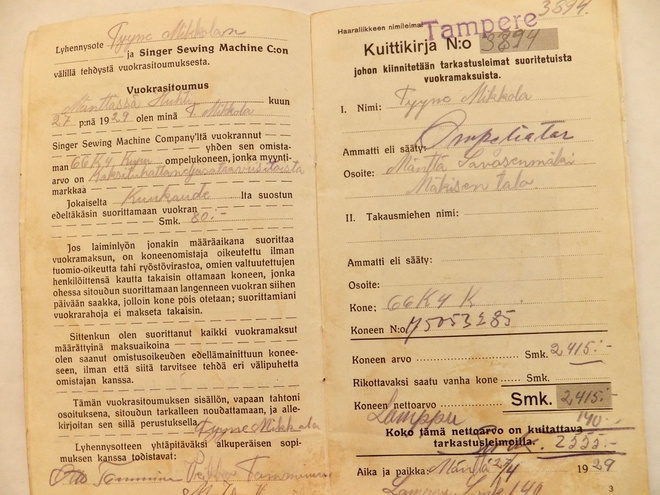 Lyhennysote Tyyne Mikkolan
ja Singer Sewing Machine C:on
välillä tehdystä vuokrasitoumuksesta.
Vuokrasitoumus
Mänttässä Huhti kuun
27 p:nä 1929 olen minä T Mikkola
Singer Sewing Machine Company'ltä vuokrannut
yhden sen omista-
man 66K4 ompelukoneen, jonka myynti-
arvo on
markkaa
Jokaiselta Kuukaude lta suostun
edeltäkäsin suorittamaan vuokran
Smk. 80.-
Jos laiminlyön jonakin määräaikana suorittaa
vuokramaksun, on koneenomistaja oikeutettu ilman
tuomio-oikeutta tahi ryöstövirastoa, omien valtuutettujen
henkilöittensä kautta takaisin ottamaan koneen, jonka
ohessa sitoudun suorittamaan langenneen vuokran siihen
päivään saakka, jolloin kone pois otetaan; suorittamiani
vuokrarahoja ei makseta takaisin.
Sittenkun olen suorittanut kaikki vuokramaksut
määrättyinä maksuaikoina
olen saanut omistusoikeuden edellämainittuun konee-
seen, ilman että siitä tarvitsee tehdä eri välipuhetta
omistajan kanssa.
Tämän vuokrasitoumuksen sisällön, vapaan tahtoni
osoituksena, sitoudun tarkalleen noudattamaan, ja alle-
kirjoitan sen millä perustuksella Tyyne Mikkola
Lyhennysotteen yhtäpitäväksi alkuperäisen sopi-
muksen kanssa todistavat:
Otto Tamminen
3894.
Haaraliikkeen nimileima: Tampere
Kuittikirja N:o 3894
johon kiinnitetään tarkastusleimat suoritetuista
vuokramaksuista.
I. Nimi: Tyyne Mikkola
Ammatti eli sääty: Ompeliatar
Osoite: Mänttä Savosenmäki
Mäkisen talo
II. Takausmiehen nimi:
Ammatti eli sääty:
Osoite:
Kone: 66K4 K
Koneen N:o
Koneen arvo Smk. 2,415:-
Rikottavaksi saatu vanha kone Smk.
Koneen nettoarvo Smk. 2,415:-
Lamppu 140.-
Koko tämä nettoarvo on kuitattava
tarkastusleimoilla. 2555:-
Aika ja paikka: Mänttä 27/4 1929
Lamppu Smk 140
3